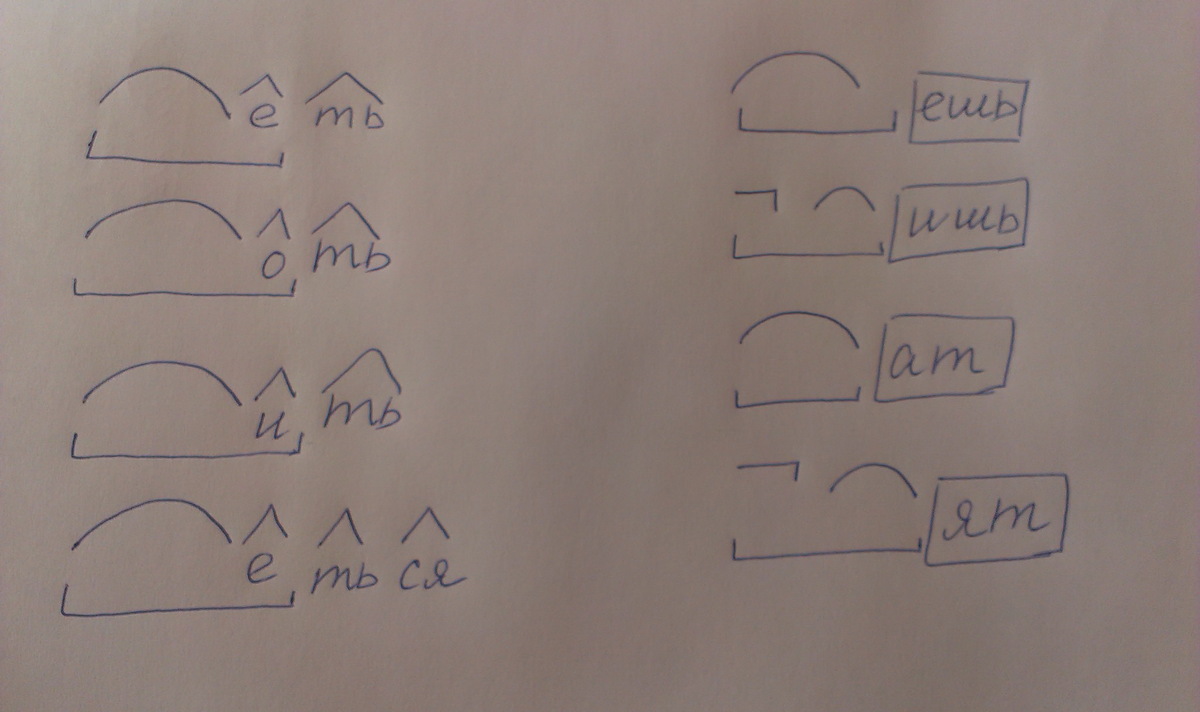 е ть ешь
о ть ишь
и ть ат
е ть ся ят